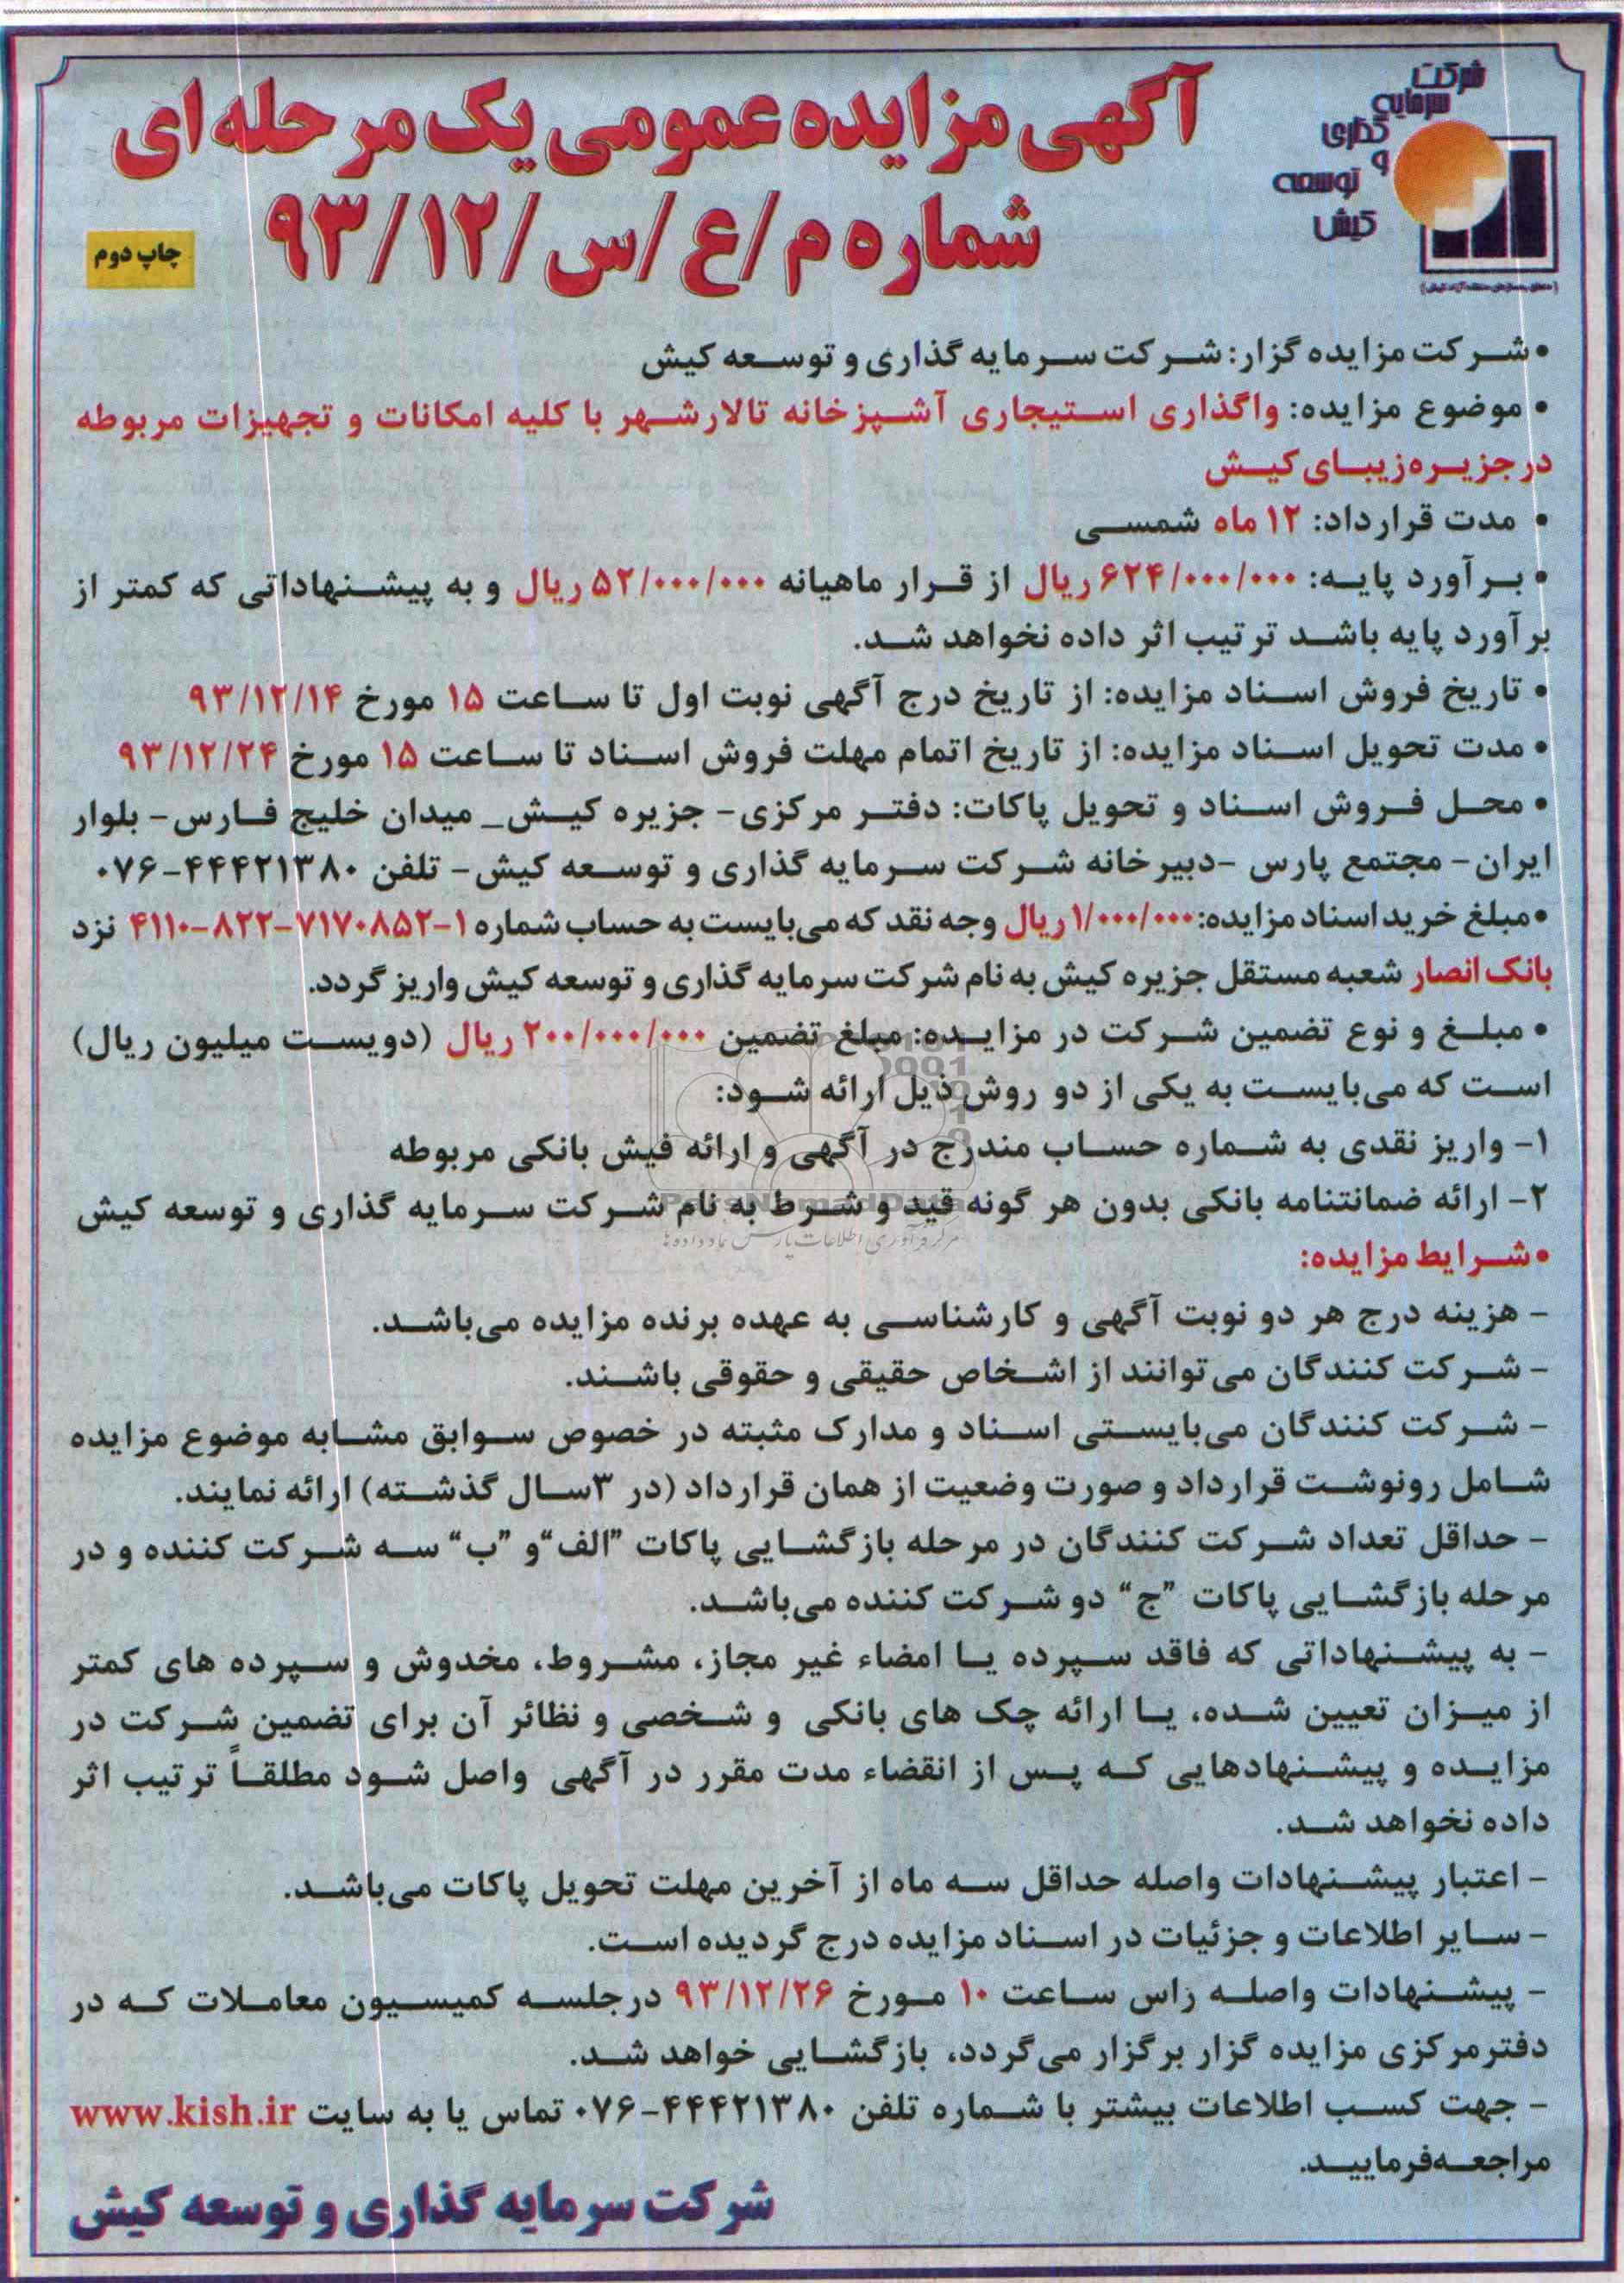 شرکت
سرمایه
گذاری
و
توسعه
کیش
(متعلق به سازمان منطقه آزاد کیش)
آگهی مزایده عمومی یک مرحله ای
شماره م/ع/س/۹۳/۱۲
چاپ دوم
• شرکت مزایده گزار: شرکت سرمایه گذاری و توسعه کیش
• موضوع مزایده: واگذاری استیجاری آشپزخانه تالارشهر با کلیه امکانات و تجهیزات مربوطه
در جزیره زیبای کیش
• مدت قرارداد: ۱۲ ماه شمسی
• برآورد پایه: ۶۲۴/۰۰۰/۰۰۰ ریال از قرار ماهیانه ۵۲/۰۰۰/۰۰۰ ریال و به پیشنهاداتی که کمتر از
برآورد پایه باشد ترتیب اثر داده نخواهد شد.
• تاریخ فروش اسناد مزایده: از تاریخ درج آگهی نوبت اول تا ساعت ۱۵ مورخ ۹۳/۱۲/۱۴
• مدت تحویل اسناد مزایده: از تاریخ اتمام مهلت فروش اسناد تا ساعت ۱۵ مورخ ۹۳/۱۲/۲۴
• محل فروش اسناد و تحویل پاکات: دفتر مرکزی- جزیره کیش_ میدان خلیج فارس- بلوار
ایران- مجتمع پارس -دبیرخانه شرکت سرمایه گذاری و توسعه کیش- تلفن ۴۴۴۲۱۳۸۰-۰۷۶
• مبلغ خرید اسناد مزایده: ۱/۰۰۰/۰۰۰ ریال وجه نقد که می‌بایست به حساب شماره ۱-۷۱۷۰۸۵۲-۸۲۲-۴۱۱۰ نزد
بانک انصار شعبه مستقل جزیره کیش به نام شرکت سرمایه گذاری و توسعه کیش واریز گردد.
• مبلغ و نوع تضمین شرکت در مزایده: مبلغ تضمین ۲۰۰/۰۰۰/۰۰۰ ریال (دویست میلیون ریال)
است که می‌بایست به یکی از دو روش ذیل ارائه شود:
۱- واریز نقدی به شماره حساب مندرج در آگهی و ارائه فیش بانکی مربوطه
۲- ارائه ضمانتنامه بانکی بدون هر گونه قید و شرط به نام شرکت سرمایه گذاری و توسعه کیش
ParsNamadData
مرکز فرآوری اطلاعات پارس نماد داده ها
• شرایط مزایده:
- هزینه درج هر دو نوبت آگهی و کارشناسی به عهده برنده مزایده می‌باشد.
- شرکت کنندگان می توانند از اشخاص حقیقی و حقوقی باشند.
- شرکت کنندگان می‌بایستی اسناد و مدارک مثبته در خصوص سوابق مشابه موضوع مزایده
شامل رونوشت قرارداد و صورت وضعیت از همان قرارداد (در ۳سال گذشته) ارائه نمایند.
- حداقل تعداد شرکت کنندگان در مرحله بازگشایی پاکات "الف" و "ب" سه شرکت کننده و در
مرحله بازگشایی پاکات "ج" دو شرکت کننده می‌باشد.
- به پیشنهاداتی که فاقد سپرده یا امضاء غیر مجاز، مشروط، مخدوش و سپرده های کمتر
از میزان تعیین شده، یا ارائه چک های بانکی و شخصی و نظائر آن برای تضمین شرکت در
مزایده و پیشنهادهایی که پس از انقضاء مدت مقرر در آگهی واصل شود مطلقاً ترتیب اثر
داده نخواهد شد.
- اعتبار پیشنهادات واصله حداقل سه ماه از آخرین مهلت تحویل پاکات می‌باشد.
- سایر اطلاعات و جزئیات در اسناد مزایده درج گردیده است.
- پیشنهادات واصله راس ساعت ۱۰ مورخ ۹۳/۱۲/۲۶ درجلسه کمیسیون معاملات که در
دفترمرکزی مزایده گزار برگزار می‌گردد، بازگشایی خواهد شد.
- جهت کسب اطلاعات بیشتر با شماره تلفن ۴۴۴۲۱۳۸۰-۰۷۶ تماس یا به سایت www.kish.ir
مراجعه‌فرمایید.
شرکت سرمایه گذاری و توسعه کیش